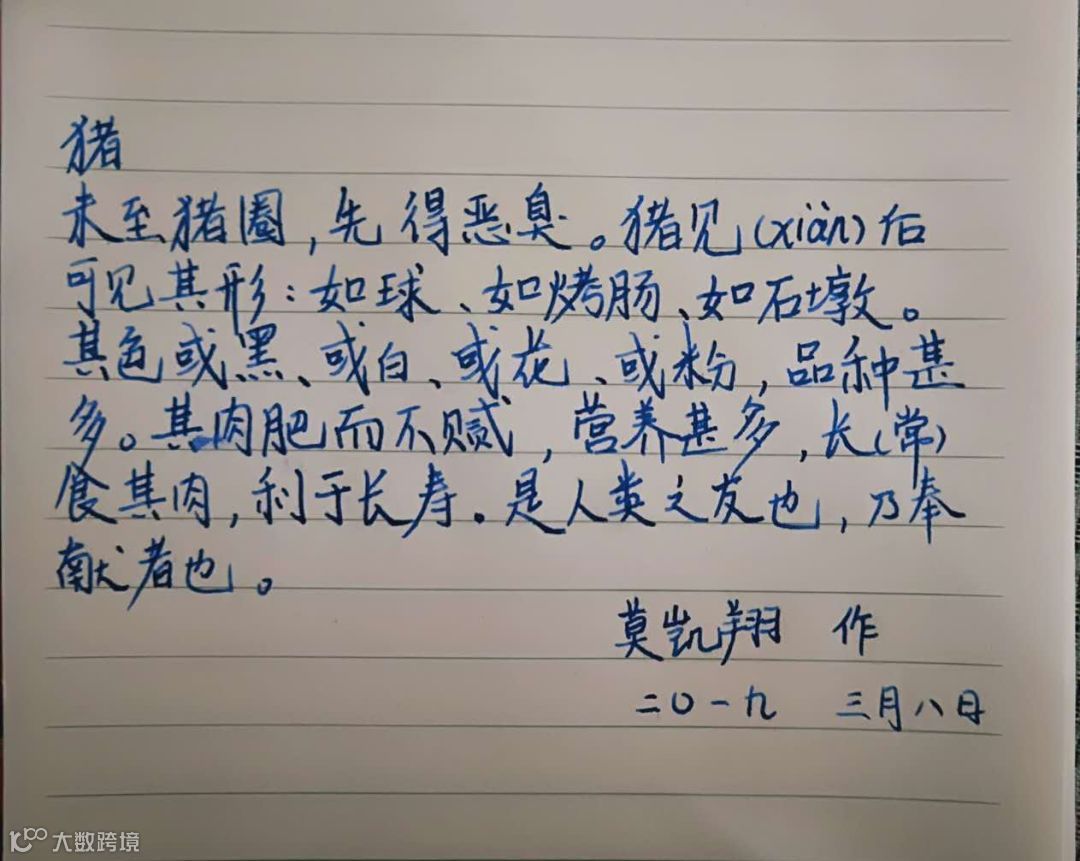 猪
未至猪圈,先得恶臭。猪见(xiàn)后
可见其形:如球、如烤肠、如石墩。
其色或黑、或白、或花、或粉,品种甚
多。其肉肥而不腻,营养甚多,长(常)
食其肉,利于长寿。是人类之友也,乃奉
献者也。
莫凯翔 作
二〇一九 三月八日
大数跨境